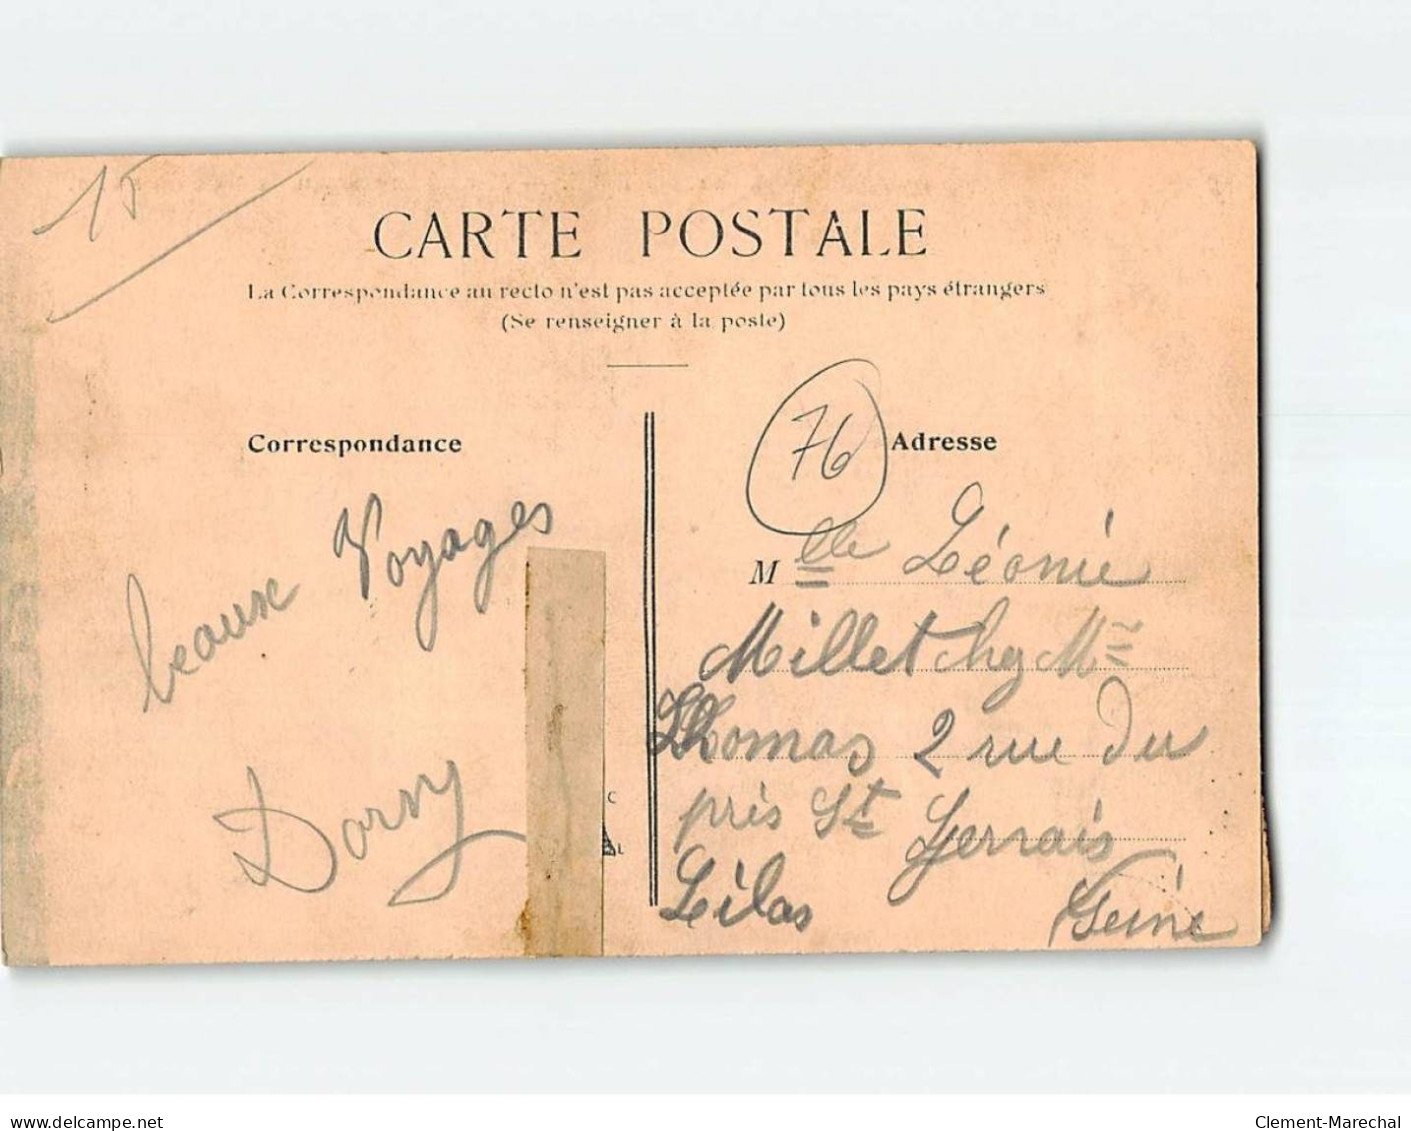 15
CARTE POSTALE
La Correspondance au recto n'est pas acceptée par tous les pays étrangers
(Se renseigner à la poste)
Correspondance
beaux Voyages
Dorny
C
L
76
Adresse
Mlle Léonie
Millet chez Me
Thomas 2 rue du
près St Gervais
Lilas Seine
www.delcampe.net
Clement-Marechal